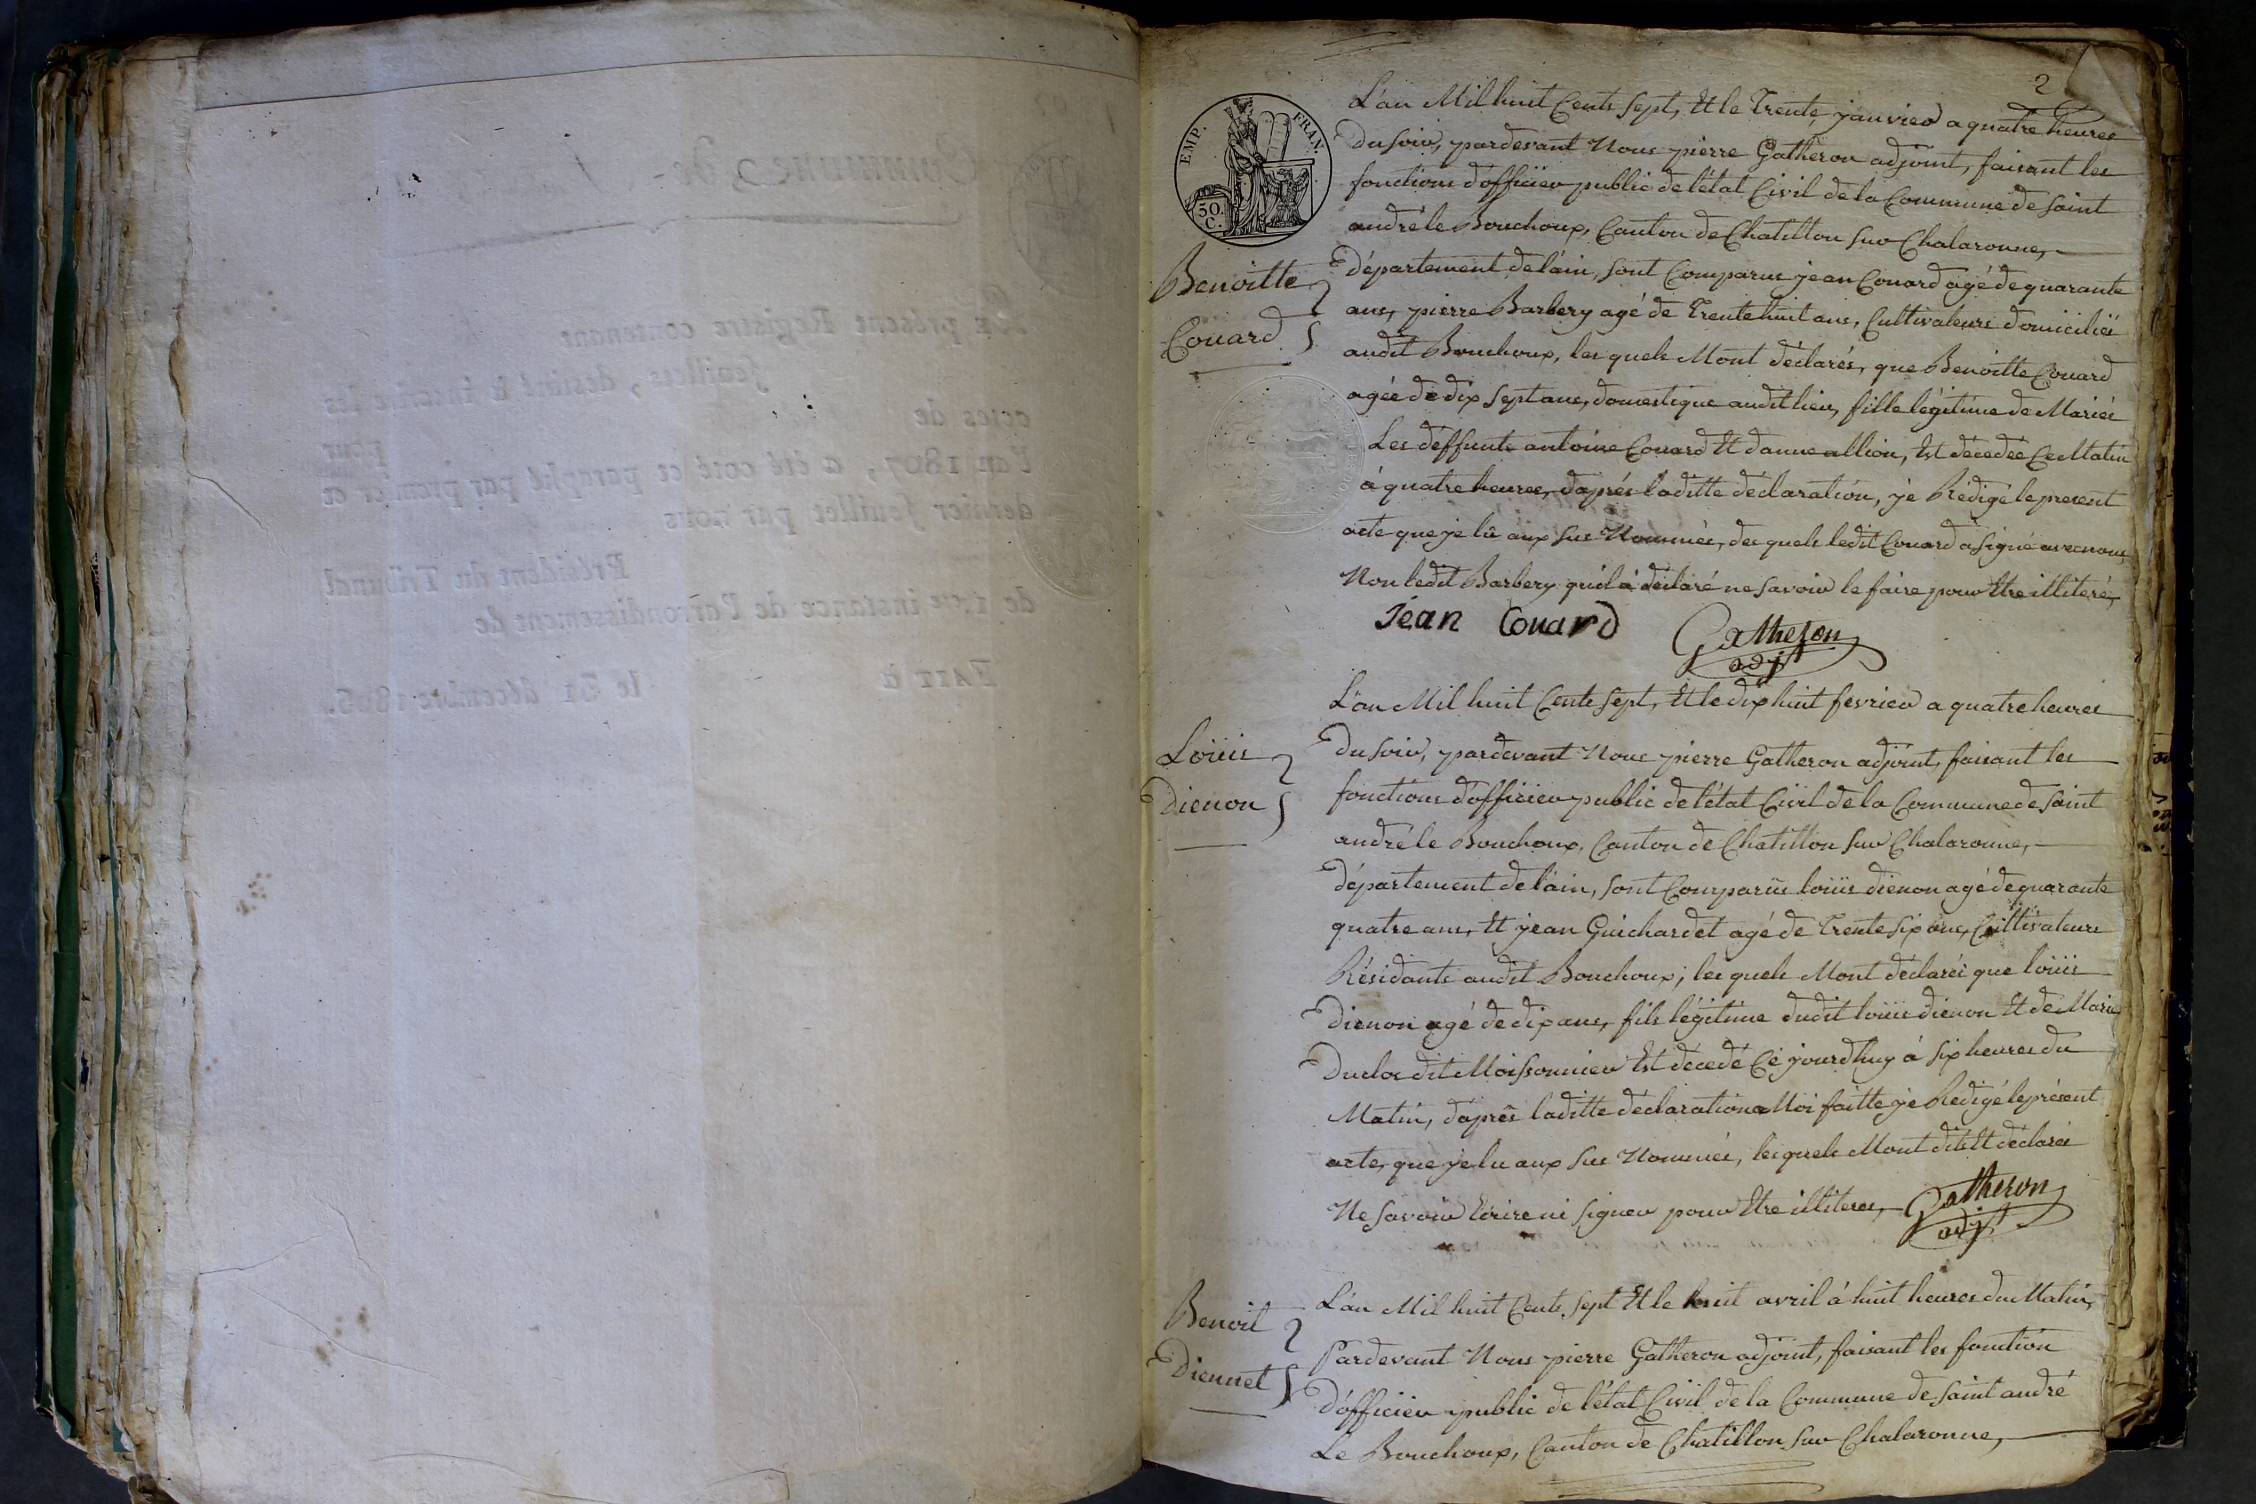 2
EMP. FRAN.
30.
C.
L'an Mil huit Cents Sept, Et le Trente janvier a quatre heures
Du Soir, pardevant Nous pierre Gatheron adjoint, faisant les
fonctions d'officier public de l'état Civil de la Commune de Saint
andré le Bouchoux, Canton de Chatillon Sur Chalaronne,
Benoitte
Couard
département de l'ain, Sont Comparus jean Couard agé de quarante
ans, pierre Barbery agé de Trente huit ans, Cultivateurs domiciliés
audit Bouchoux, les quels Mont déclarés, que Benoitte Couard
agée de dix Sept ans, domestique audit lieu, fille légitime de Mariés
Les déffunts antoine Couard Et d'anne allion, Est décedée Ce Matin
à quatre heures, d'aprés laditte déclaration, je Rédigé le present
acte que je lû aux Sus Nommés, des quels ledit Couard a Signé avec nous
Non ledit Barbery qu'il à déclaré ne Savoir le faire pour Etre illiteré,
Jean Couard Gatheron
adjt
L'an Mil huit Cents Sept, Et le dix huit fevrier a quatre heures
Loüis
Dienon
Du Soir, pardevant Nous pierre Gatheron adjoint, faisant les
fonctions d'officier public de l'état Civil de la Commune de Saint
andré le Bouchoux, Canton de Chatillon Sur Chalaronne,
département de l'ain, Sont Comparus loüis dienon agé de quarante
quatre ans, Et jean Guichardet agé de Trente Six ans, Cultivateurs
Résidants audit Bouchoux; les quels Mont déclarés que loüis
Dienon agé de dix ans, fils légitime dudit loüis dienon Et de Marie
Duclos dit Moissonnier Est décedé Ce jourdhuy à Six heures du
Matin, d'aprés laditte déclaration a Moi faitte je Redigé le présent
acte, que je lu aux Sus Nommés, lesquels Mont dits Et déclarés
Ne Savoir Ecrire ni Signer pour Etre illiteres, Gatheron
adjt
Benoit
Diennet
L'an Mil huit Cents Sept Et le huit avril à huit heures du Matin,
Pardevant Nous pierre Gatheron adjoint, faisant les fonction
D'officier public de l'état Civil de la Commune de Saint andré
Le Bouchoux, Canton de Chatillon Sur Chalaronne,